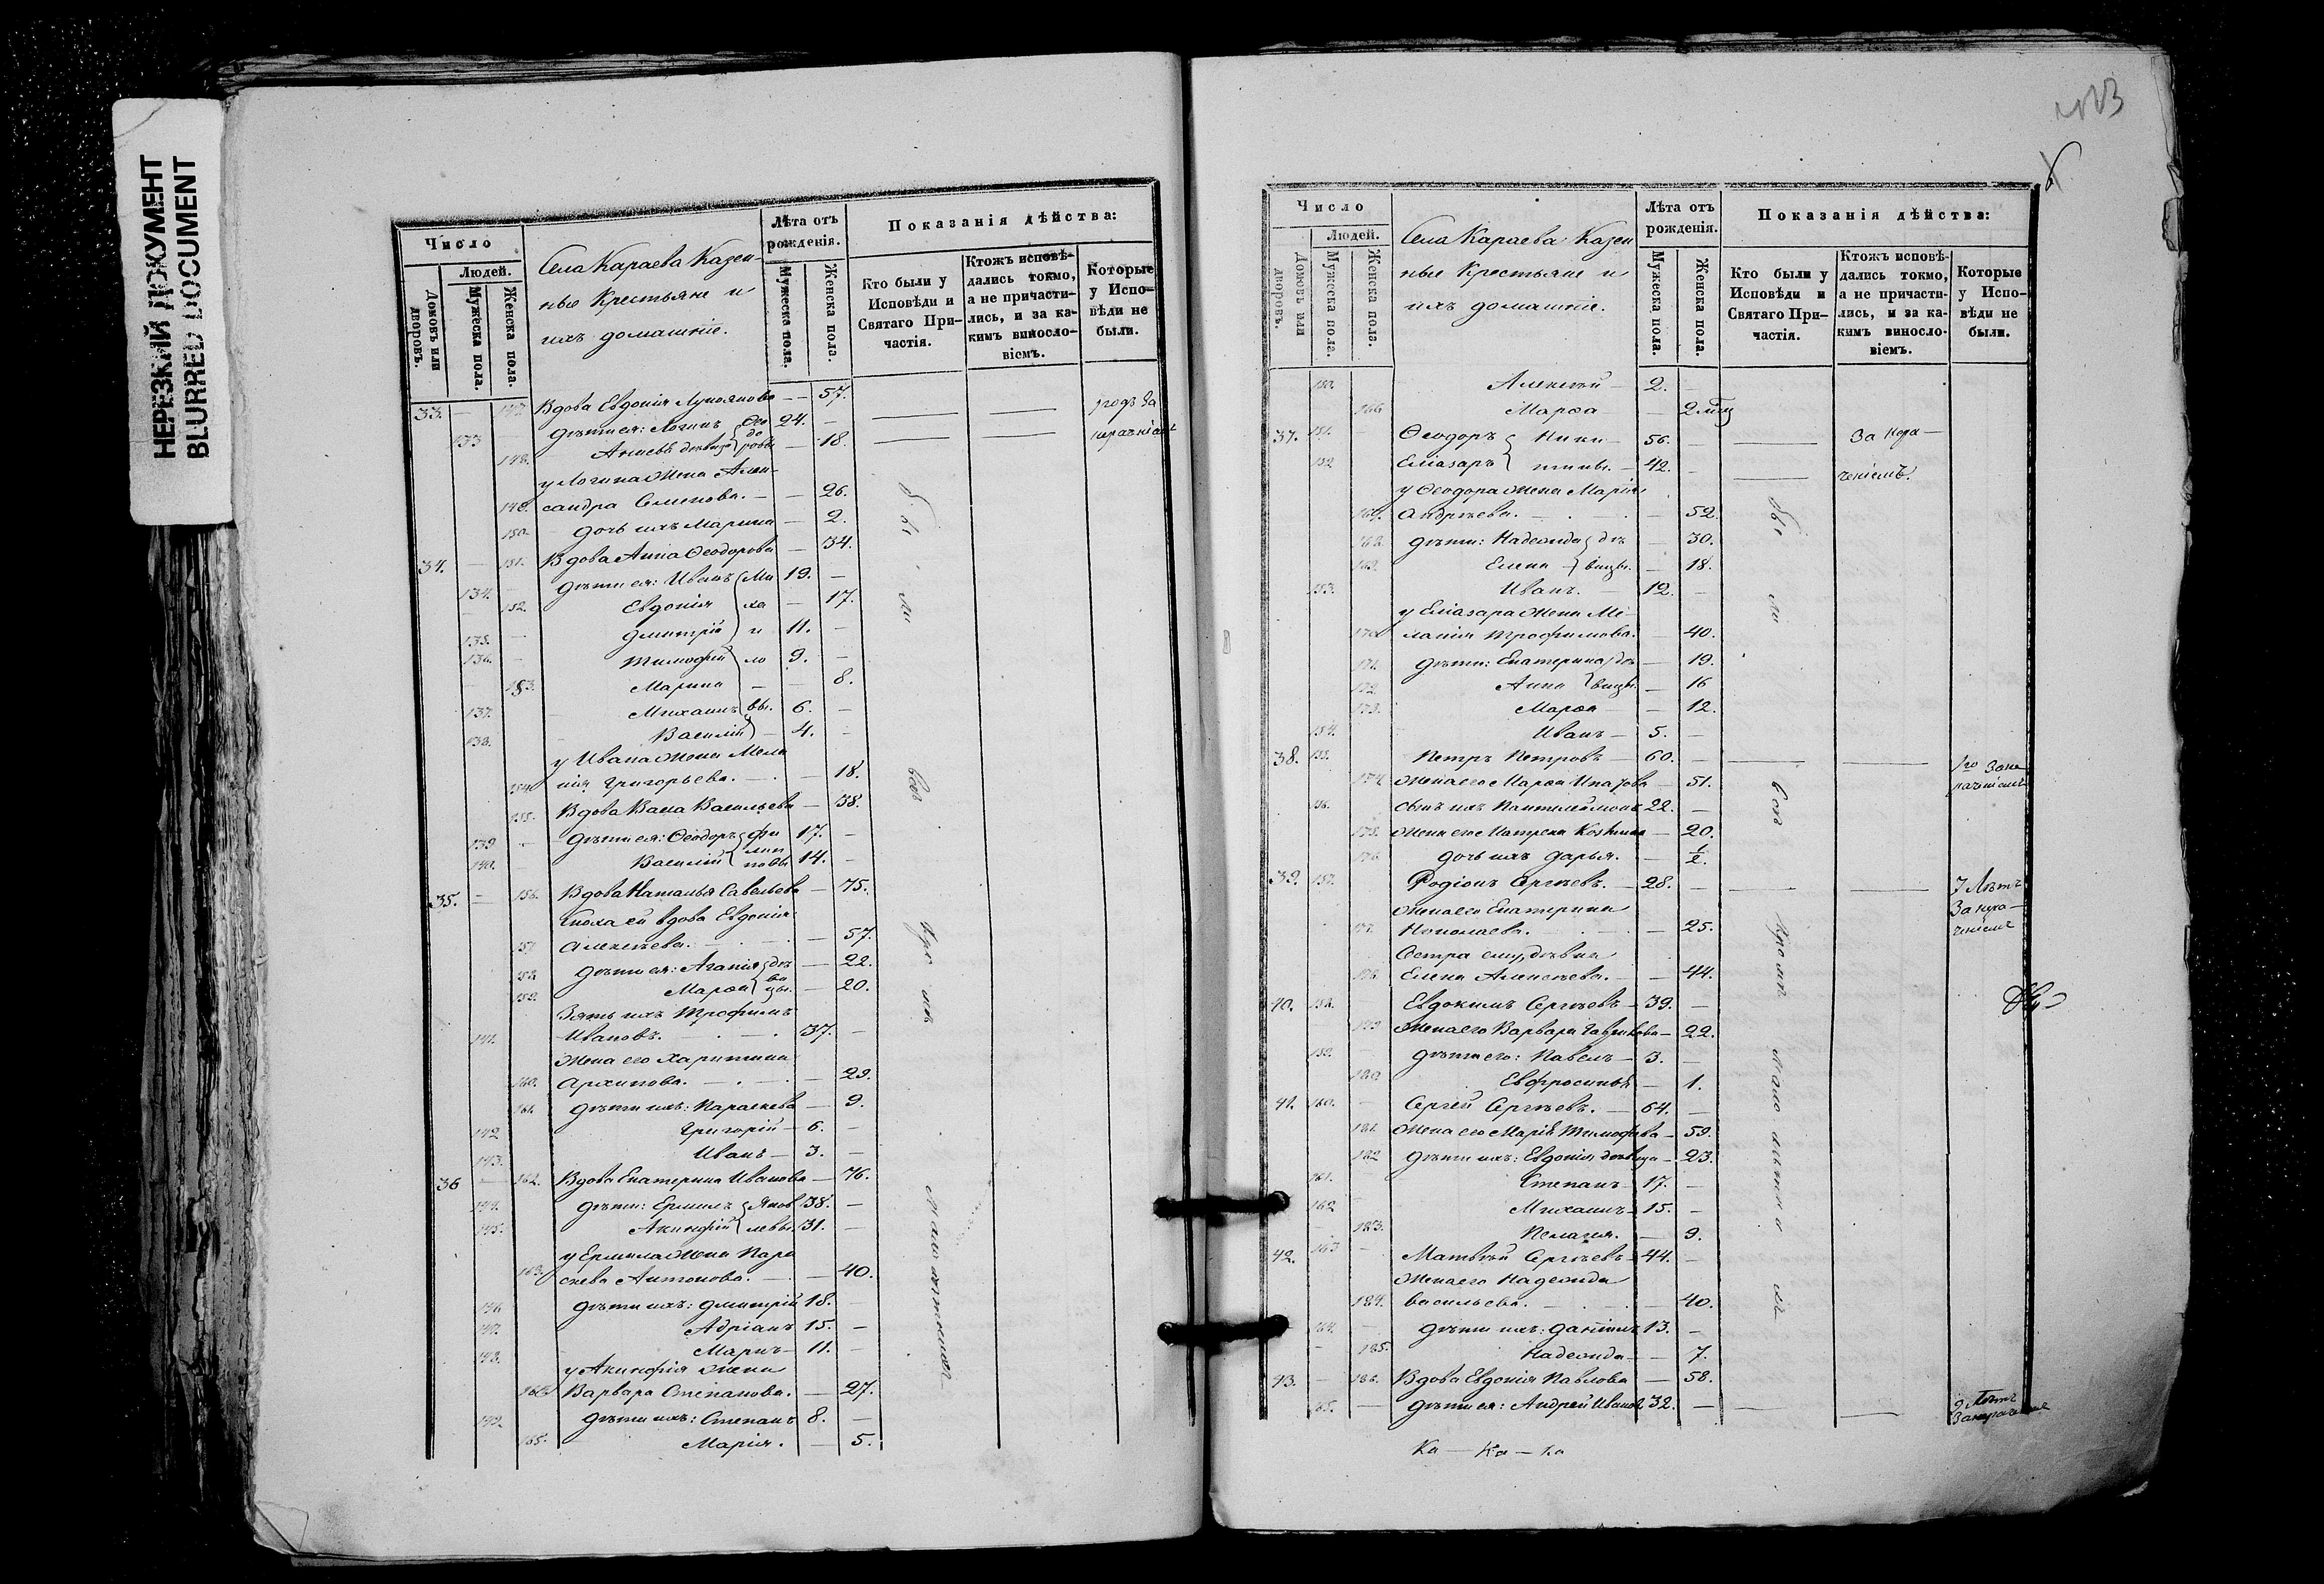 НЕРЕЗКИЙ ДОКУМЕНТ
BLURRED DOCUMENT
Число
Людей.
Домовъ или дворовъ.
Мужеска пола.
Женска пола.
Села Караева Казен-
ные Крестьяне и
ихъ домашніе.
Лѣта отъ рожденія.
Мужеска пола.
Женска пола.
Показанія дѣйства:
Кто были у Исповѣди и Святаго При-частія.
Ктожъ исповѣ-дались токмо, а не причасти-лись, и за ка-кимъ винosло-віемъ.
Которые у Испо-вѣди не были.
33. — 147. Вдова Евдокія Лукоянова — 57.
133 дѣти ея: Логинъ 24. —
148. 18.
у Логина жена Алек-
149. сандра Семенова. — 26.
150. дочь ихъ Марина — 2.
34. — 151. Вдова Анна Ѳеодорова — 34.
134. дѣти ея: Иванъ 19. —
152. Евдокія — 17.
135. Дмитрій 11. —
136. Тимофій 9. —
153. Марина — 8.
137. Михаилъ 6. —
138. Василій 4. —
у Ивана жена Мела
154. нія Григорьева. — 18.
155. Вдова Васса Васильева — 38.
139 дѣти ея: Ѳеодоръ 17. —
140. Василій 14. —
35. — 156. Вдова Наталья Савельева — 75.
Сноха ей вдова Евдокія
157 Алексѣева. — 57.
158 дѣти ея: Агапія — 22.
159. Марѳа — 20.
Зять ихъ Трофимъ
141. Ивановъ. 37. —
Жена его Харитина
160. Архипова. — 29.
161. дѣти ихъ: Параскева — 9.
142 Григорій — 6. —
143. Иванъ — 3. —
36 — 162. Вдова Екатерина Иванова — 76.
144. дѣти: Ермилъ Яков 38. —
145. Акинфій левы 31. —
у Ермила жена Пара
163. скева Антонова. — 40.
146 дѣти ихъ: Дмитрій 18. —
147. Адріанъ 15. —
148. Маркъ — 11. —
у Акинфія жена
164 Варвара Степанова. — 27.
149 дѣти ихъ: Степанъ 8. —
165. Марія. — 5.
были
всѣ
Число
Людей.
Домовъ или дворовъ.
Мужеска пола.
Женска пола.
Села Караева Казен
ные Крестьяне и
ихъ домашніе.
Лѣта отъ рожденія.
Мужеска пола.
Женска пола.
Показанія дѣйства:
Кто были у Исповѣди и Святаго При-частія.
Ктожъ исповѣ-дались токмо, а не причасти-лись, и за ка-кимъ винosло-віемъ.
Которые у Испо-вѣди не были.
150. Алексѣй — 2. —
166 Марѳа —
37. 151. Ѳеодоръ Ники — 56. — За нера —
152 Елiазаръ тины. — 42. — ченіемъ.
у Ѳеодора жена Марія
167. Андрѣева. — 52.
168. дѣти: Надежда — 30.
169. Елена — 18.
153. Иванъ. 12. —
у Елiазара жена Ме-
170 ланія Трофимова. — 40.
171. дѣти: Екатерина — 19.
172. Анна — 16
173. Марѳа — 12.
154. Иванъ — 5. —
38. 155. Петръ Петровъ — 60. —
174. Жена его Марѳа — 51.
156. Сынъ ихъ Пантелеймонъ 22. —
175. Жена его Матрена Козмина — 20.
176. дочь ихъ Дарья. — ½.
39. 157. Родіонъ Сергѣевъ. — 28. — 7 Лѣтъ
Жена его Екатерина
177. Николаева. — 25.
Сестра ему, дѣвка
178. Елена Алексѣева. — 44.
40. 158. Евдокимъ Сергѣевъ — 39. —
179 Жена его Варвара Гаврилова — 22.
159. дѣти его: Павелъ — 3. —
180 Евфросинья — 1.
41. 160. Сергѣй Сергѣевъ. — 64. —
181. Жена его Марія Тимофѣева — 59.
182 дѣти ихъ: Евдокія дѣвица — 23.
161. Степанъ — 17. —
162 Михаилъ — 15. —
183. Пелагія. — 9.
42. 163 Матвѣй Сергѣевъ — 44. —
Жена его Надежда
184. Васильева. — 40.
164. дѣти ихъ: Даніилъ 13. —
185. Надежда — 7.
43. — 186. Вдова Евдокія Павлова — 58.
165. дѣти ея: Андрей Иванов 32. — 9 Лѣтъ
были
всѣ
Кромѣ
Ка — Ка — Ка